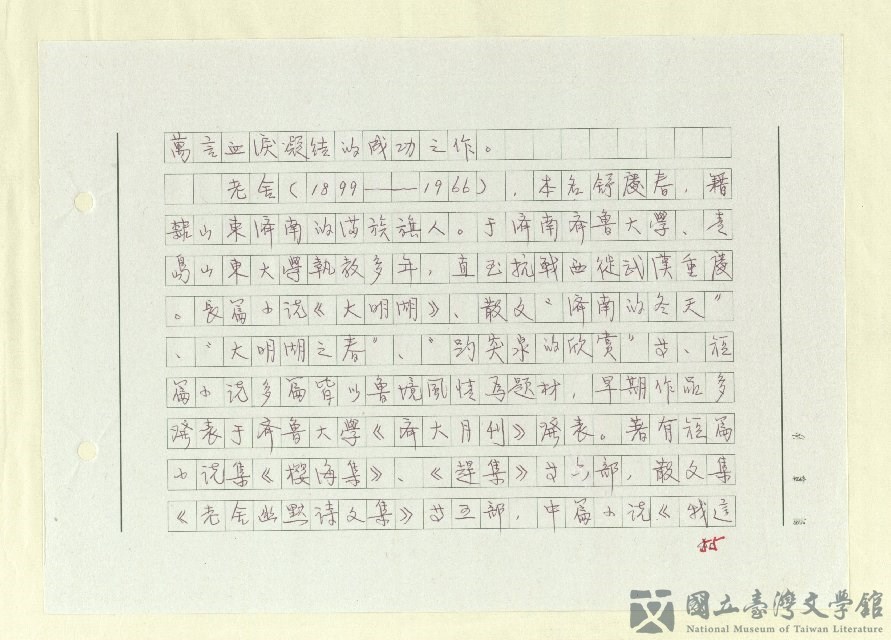 萬言血淚凝结的成功之作。
老舍(1899——1966),本名舒慶春,籍
隸山東濟南的滿族旗人。于濟南齊魯大學、青
島山東大學執教多年,直至抗戰西徙武漢重慶
。長篇小说《大明湖》、散文“濟南的冬天”
、“大明湖之春”、“趵突泉的欣赏”等、短
篇小说多篇皆以魯境風情爲题材,早期作品多
發表于齊魯大學《齊大月刊》發表。著有短篇
小说集《櫻海集》、《趕集》等六部,散文集
《老舍幽默詩文集》等五部,中篇小说《我這
55
國立臺灣文學館
National Museum of Taiwan Literature